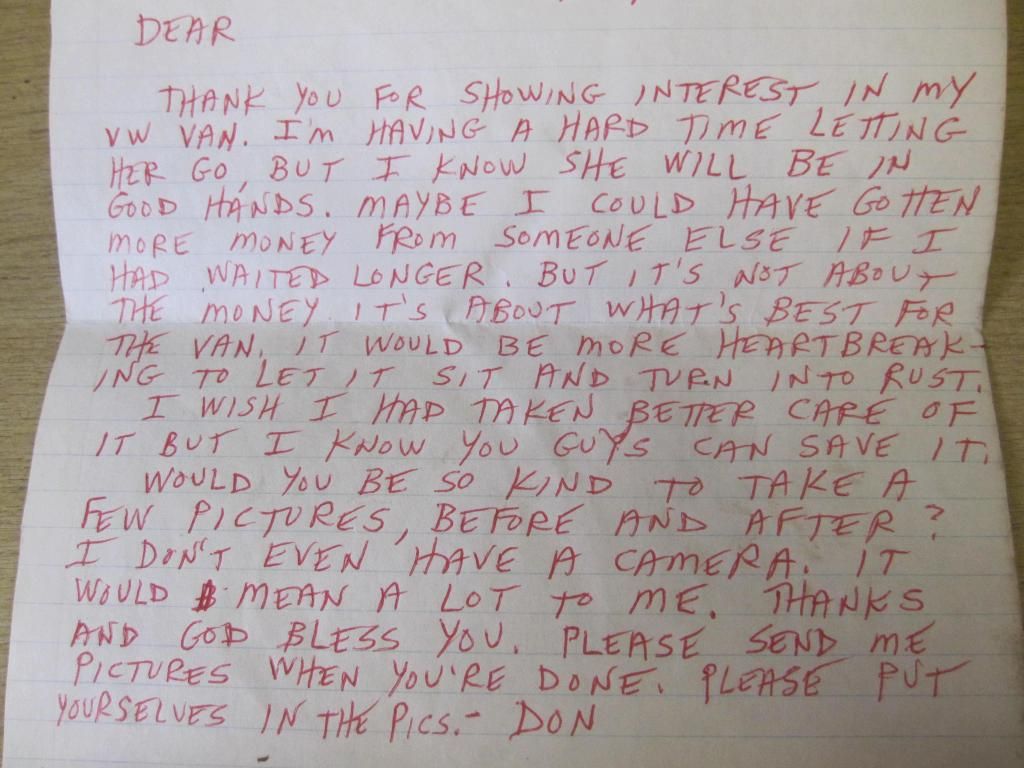 DEAR
THANK YOU FOR SHOWING INTEREST IN MY
VW VAN. I'm HAVING A HARD TIME LETTING
HER GO, BUT I KNOW SHE WILL BE IN
GOOD HANDS. MAYBE I COULD HAVE GOTTEN
MORE MONEY FROM SOMEONE ELSE IF I
HAD WAITED LONGER. BUT IT'S NOT ABOUT
THE MONEY. IT'S ABOUT WHAT'S BEST FOR
THE VAN. IT WOULD BE MORE HEARTBREAK-
ING TO LET IT SIT AND TURN INTO RUST.
I WISH I HAD TAKEN BETTER CARE OF
IT BUT I KNOW YOU GUYS CAN SAVE IT.
WOULD YOU BE SO KIND TO TAKE A
FEW PICTURES, BEFORE AND AFTER?
I DON'T EVEN HAVE A CAMERA. IT
WOULD MEAN A LOT TO ME. THANKS
AND GOD BLESS YOU. PLEASE SEND ME
PICTURES WHEN YOU'RE DONE. PLEASE PUT
YOURSELVES IN THE PICS.- DON